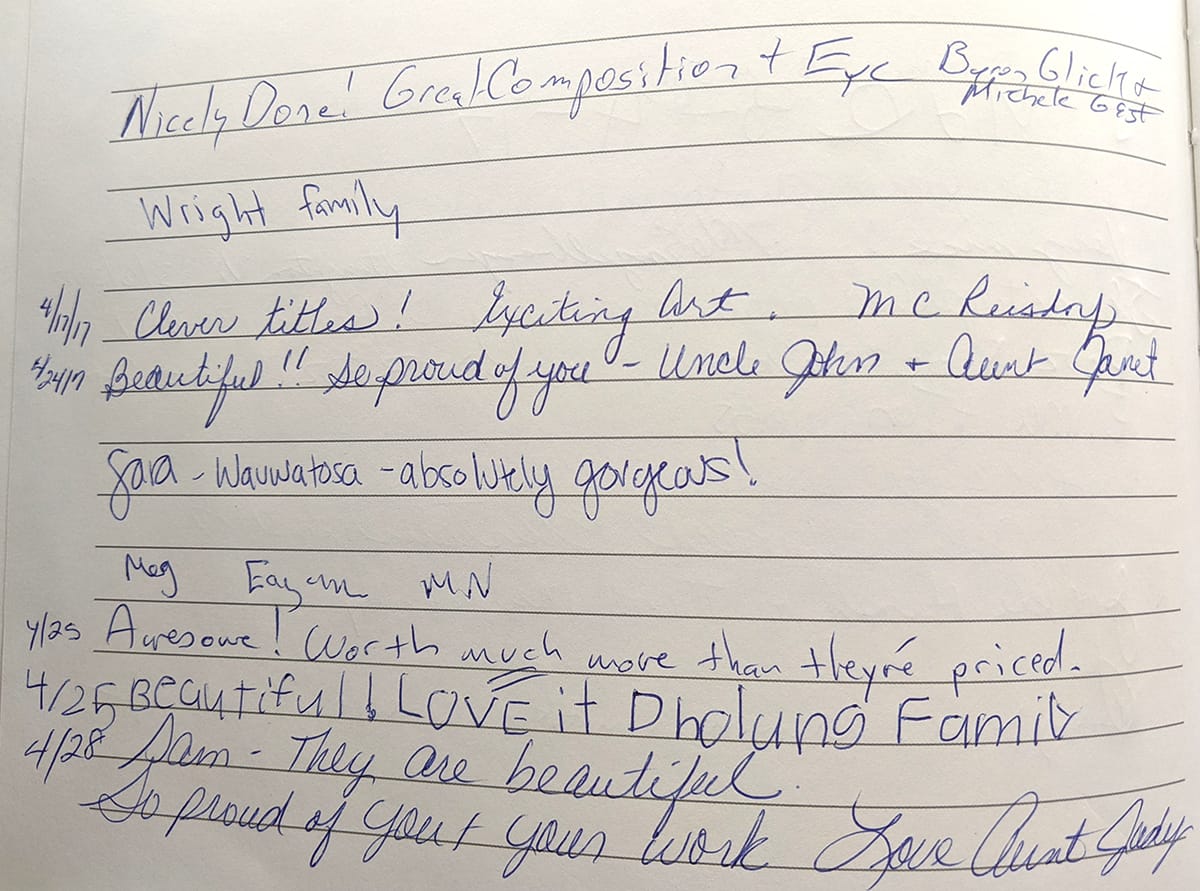 Nicely Done! Great Composition + Eye Byron Glick +
Michele Gest
Wright family
4/17/17 Clever titles! Exciting Art. MC Reisdorf
4/24/17 Beautiful!! So proud of you - Uncle John + Aunt Janet
Sara - Wauwatosa - absolutely gorgeous!
Meg Eagan MN
4/25 Awesome! Worth much more than they're priced.
4/25 Beautiful! LOVE it Dholung Family
4/28 Sam - They are beautiful.
So proud of you + your work Love Aunt Judy